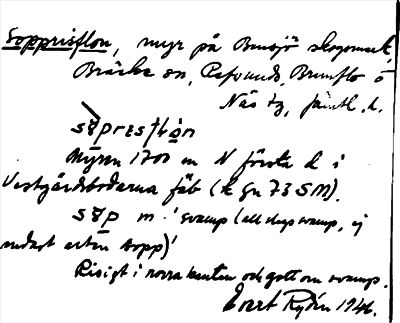 Soppristlon, myr på Bensjö skogsmark,
Bräcke sn, Refsunds, Brunflo o
Näs tg, Jämtl. l.
söpresƚlón
Myren 1700 m N första d i
Vestgårdsbodarna fäb (k gn 73 SM).
sǫp m. 'svamp (all slags svamp, ej
endast arten sopp)'
Risigt i norra kanten och gott om svamp.
Evert Rydén 1946.